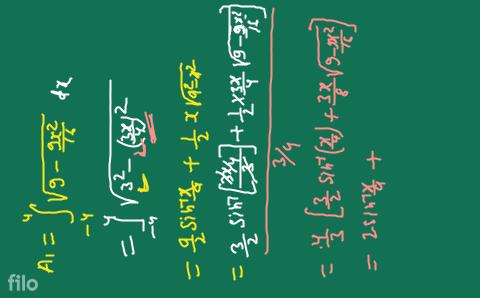 A₁ = ∫₋₄⁴ √(9 - 9x²/16) dx
= ∫₋₄⁴ √(3² - (3x/4)²)
= a/2 sin⁻¹ x/a + 1/2 x √(a²-x²)
= 3/2 sin⁻¹[(3x/4)/3] + 1/2 × 3x/4 √(9 - 9x²/16)]
3/4
= 4/3 [3/2 sin⁻¹(x/4) + 3x/8 √(9 - 9x²/16)]
= 2 sin⁻¹ x/4 +
filo